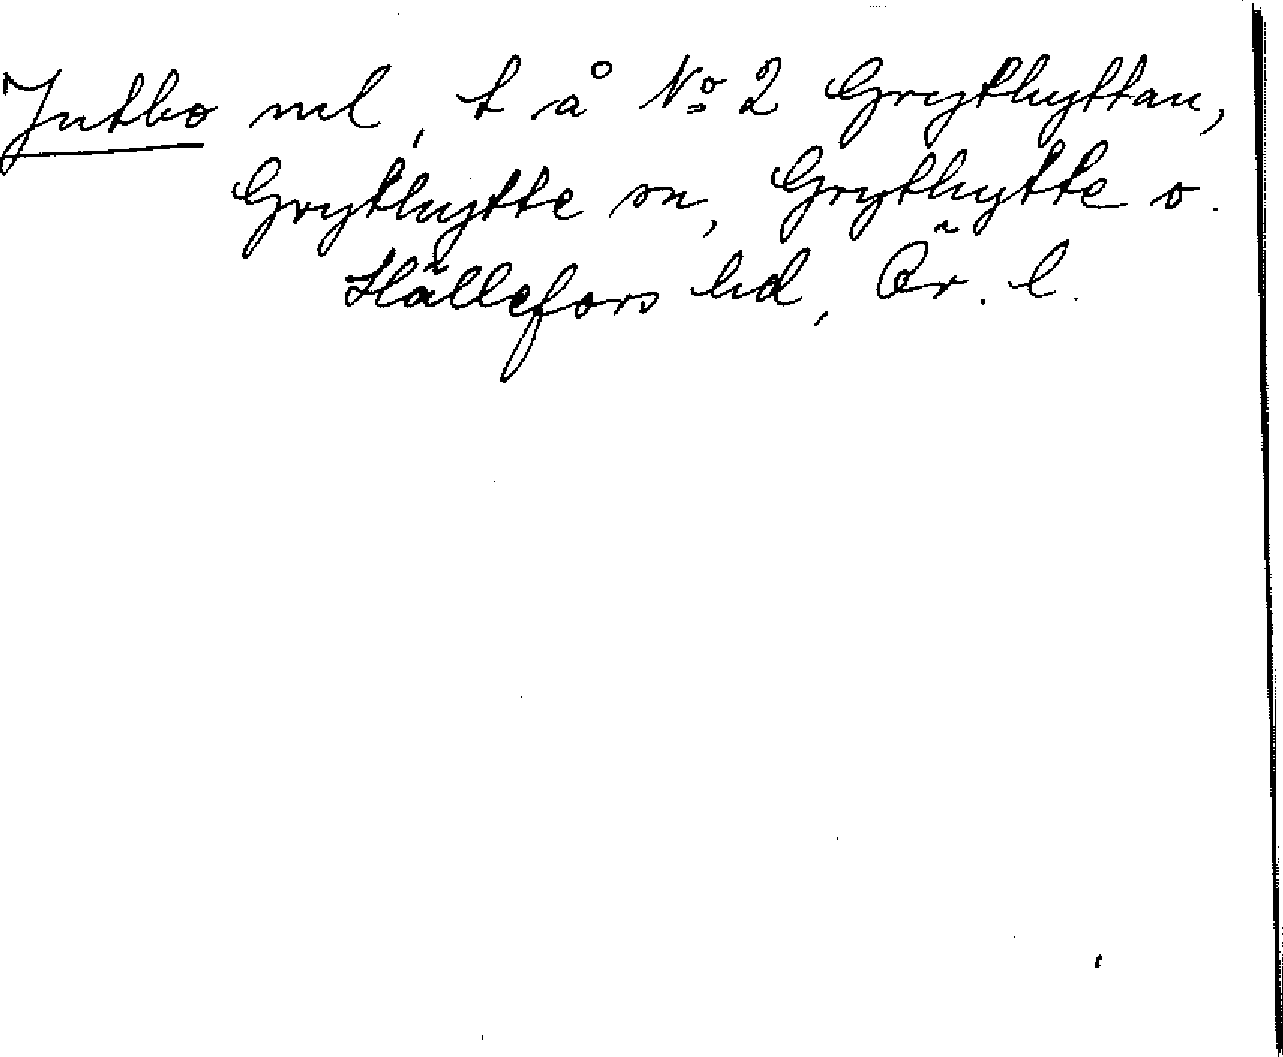 Jutbo ml, t å No 2 Grythyttan,
Grythytte sn, Grythytte o.
Hällefors hd, Ör. l.